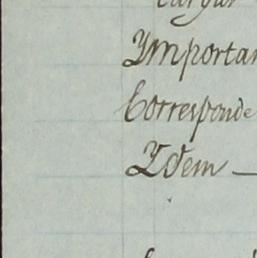 Importan
Corresponde
Idem —